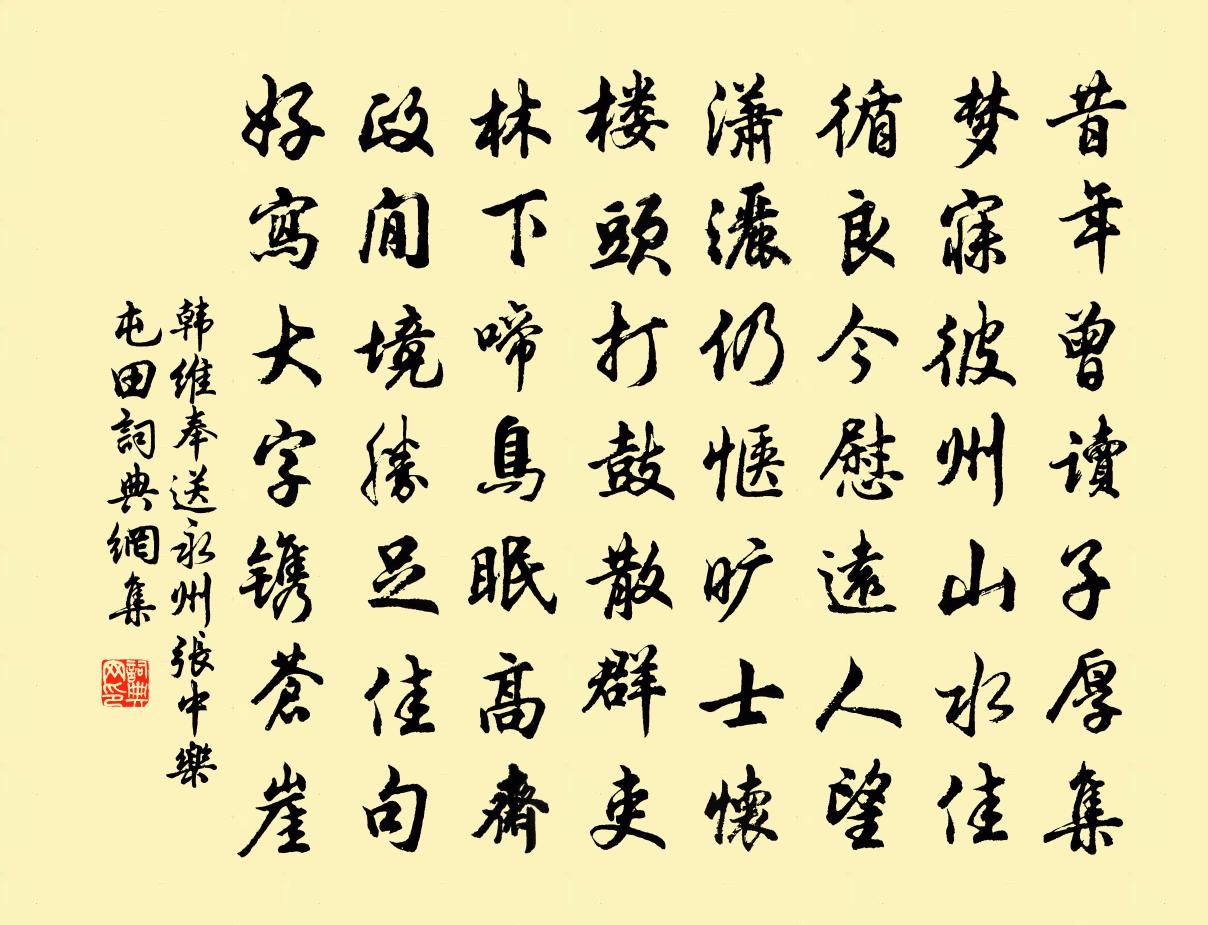 昔年曾讀子厚集
梦寐彼州山水佳
循良今慰遠人望
瀟灑仍惬旷士懷
楼頭打鼓散群吏
林下啼鳥眠高齋
政閒境勝足佳句
好寫大字镌蒼崖
韩维奉送永州張中樂
屯田詞典網集
詞典
网印